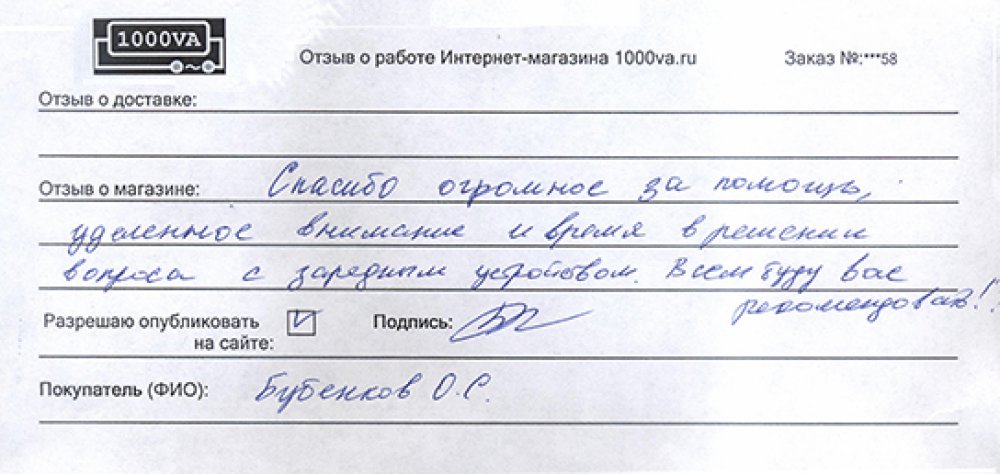 1000VA
Отзыв о работе Интернет-магазина 1000va.ru
Заказ №:***58
Отзыв о доставке:
Отзыв о магазине: Спасибо огромное за помощь,
уделенное внимание и время в решении
вопроса с зарядным устройством. Всем буду вас
рекомендовать!!
Разрешаю опубликовать
на сайте:
Подпись:
Покупатель (ФИО): Бубенков О.С.